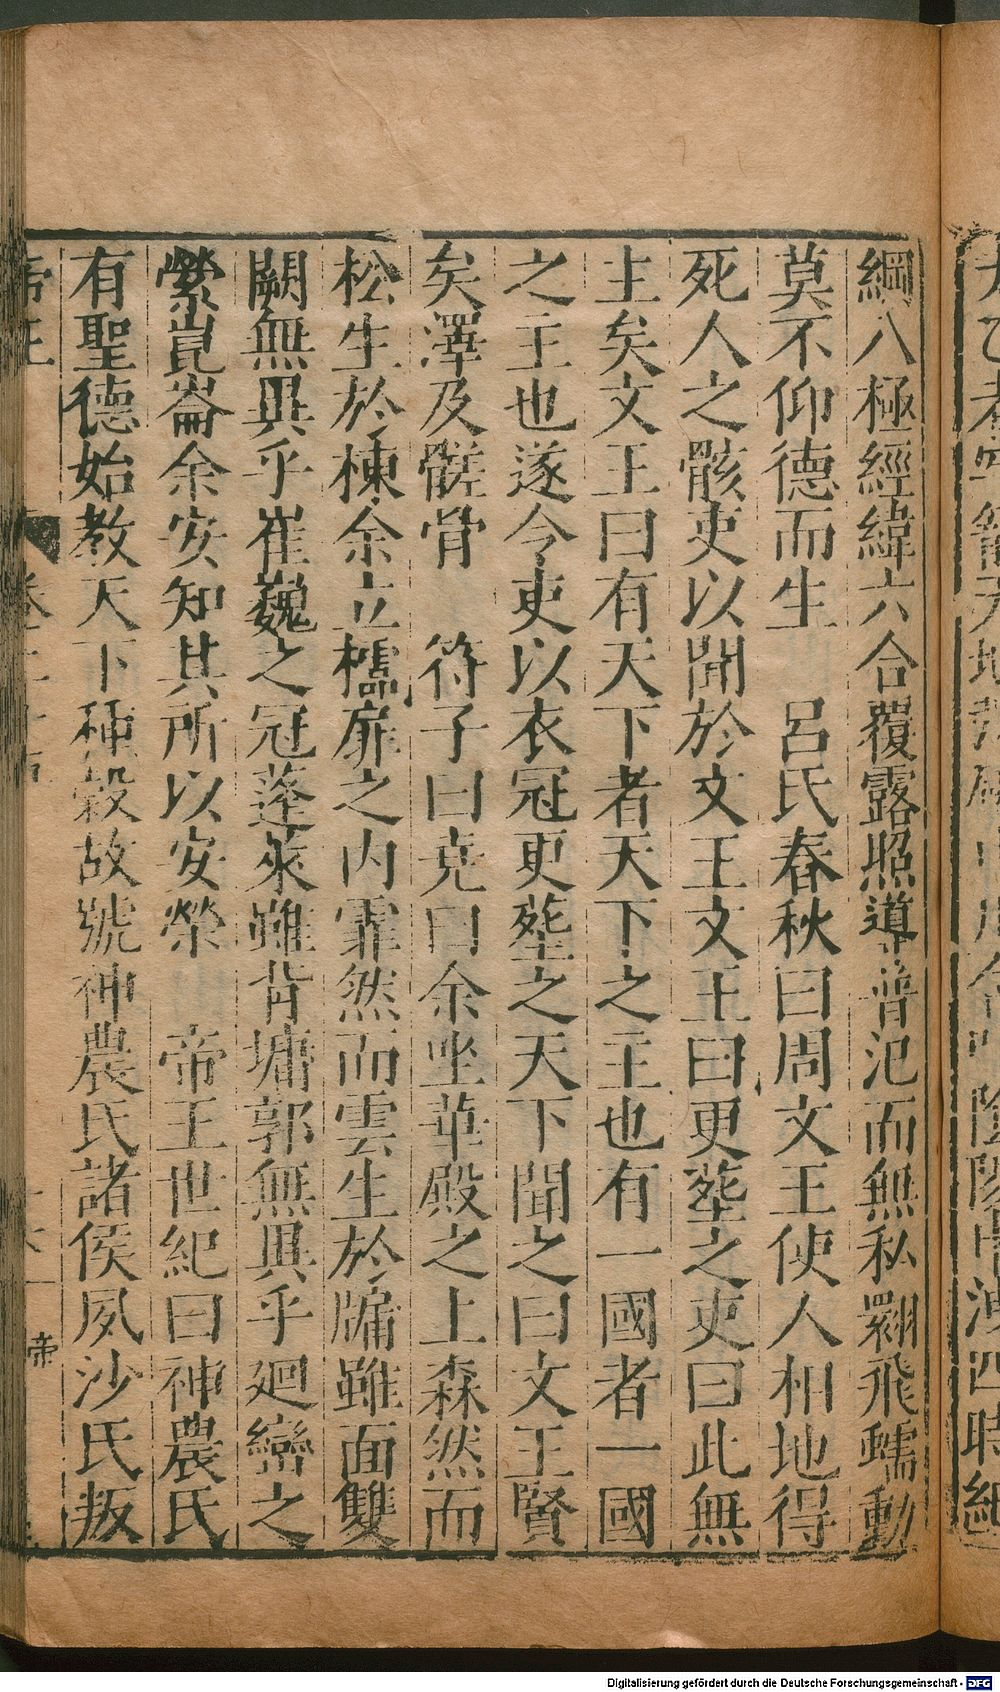 綱八極經緯六合覆露照導普氾而無私翾飛蠕動
莫不仰德而生　呂氏春秋曰周文王使人相地得
死人之骸吏以聞於文王文王曰更葬之吏曰此無
主矣文王曰有天下者天下之主也有一國者一國
之主也遂令吏以衣冠更葬之天下聞之曰文王賢
矣澤及髊骨　符子曰堯曰余坐華殿之上森然而
松生於棟余立櫺扉之內霏然而雲生於牖雖面雙
闕無異乎崔巍之冠蓬萊雖背墉郭無異乎廻巒之
縈崑崙余安知其所以安榮　帝王世紀曰神農氏
有聖德始教天下種穀故號神農氏諸侯夙沙氏叛
帝
Digitalisierung gefördert durch die Deutsche Forschungsgemeinschaft - DFG